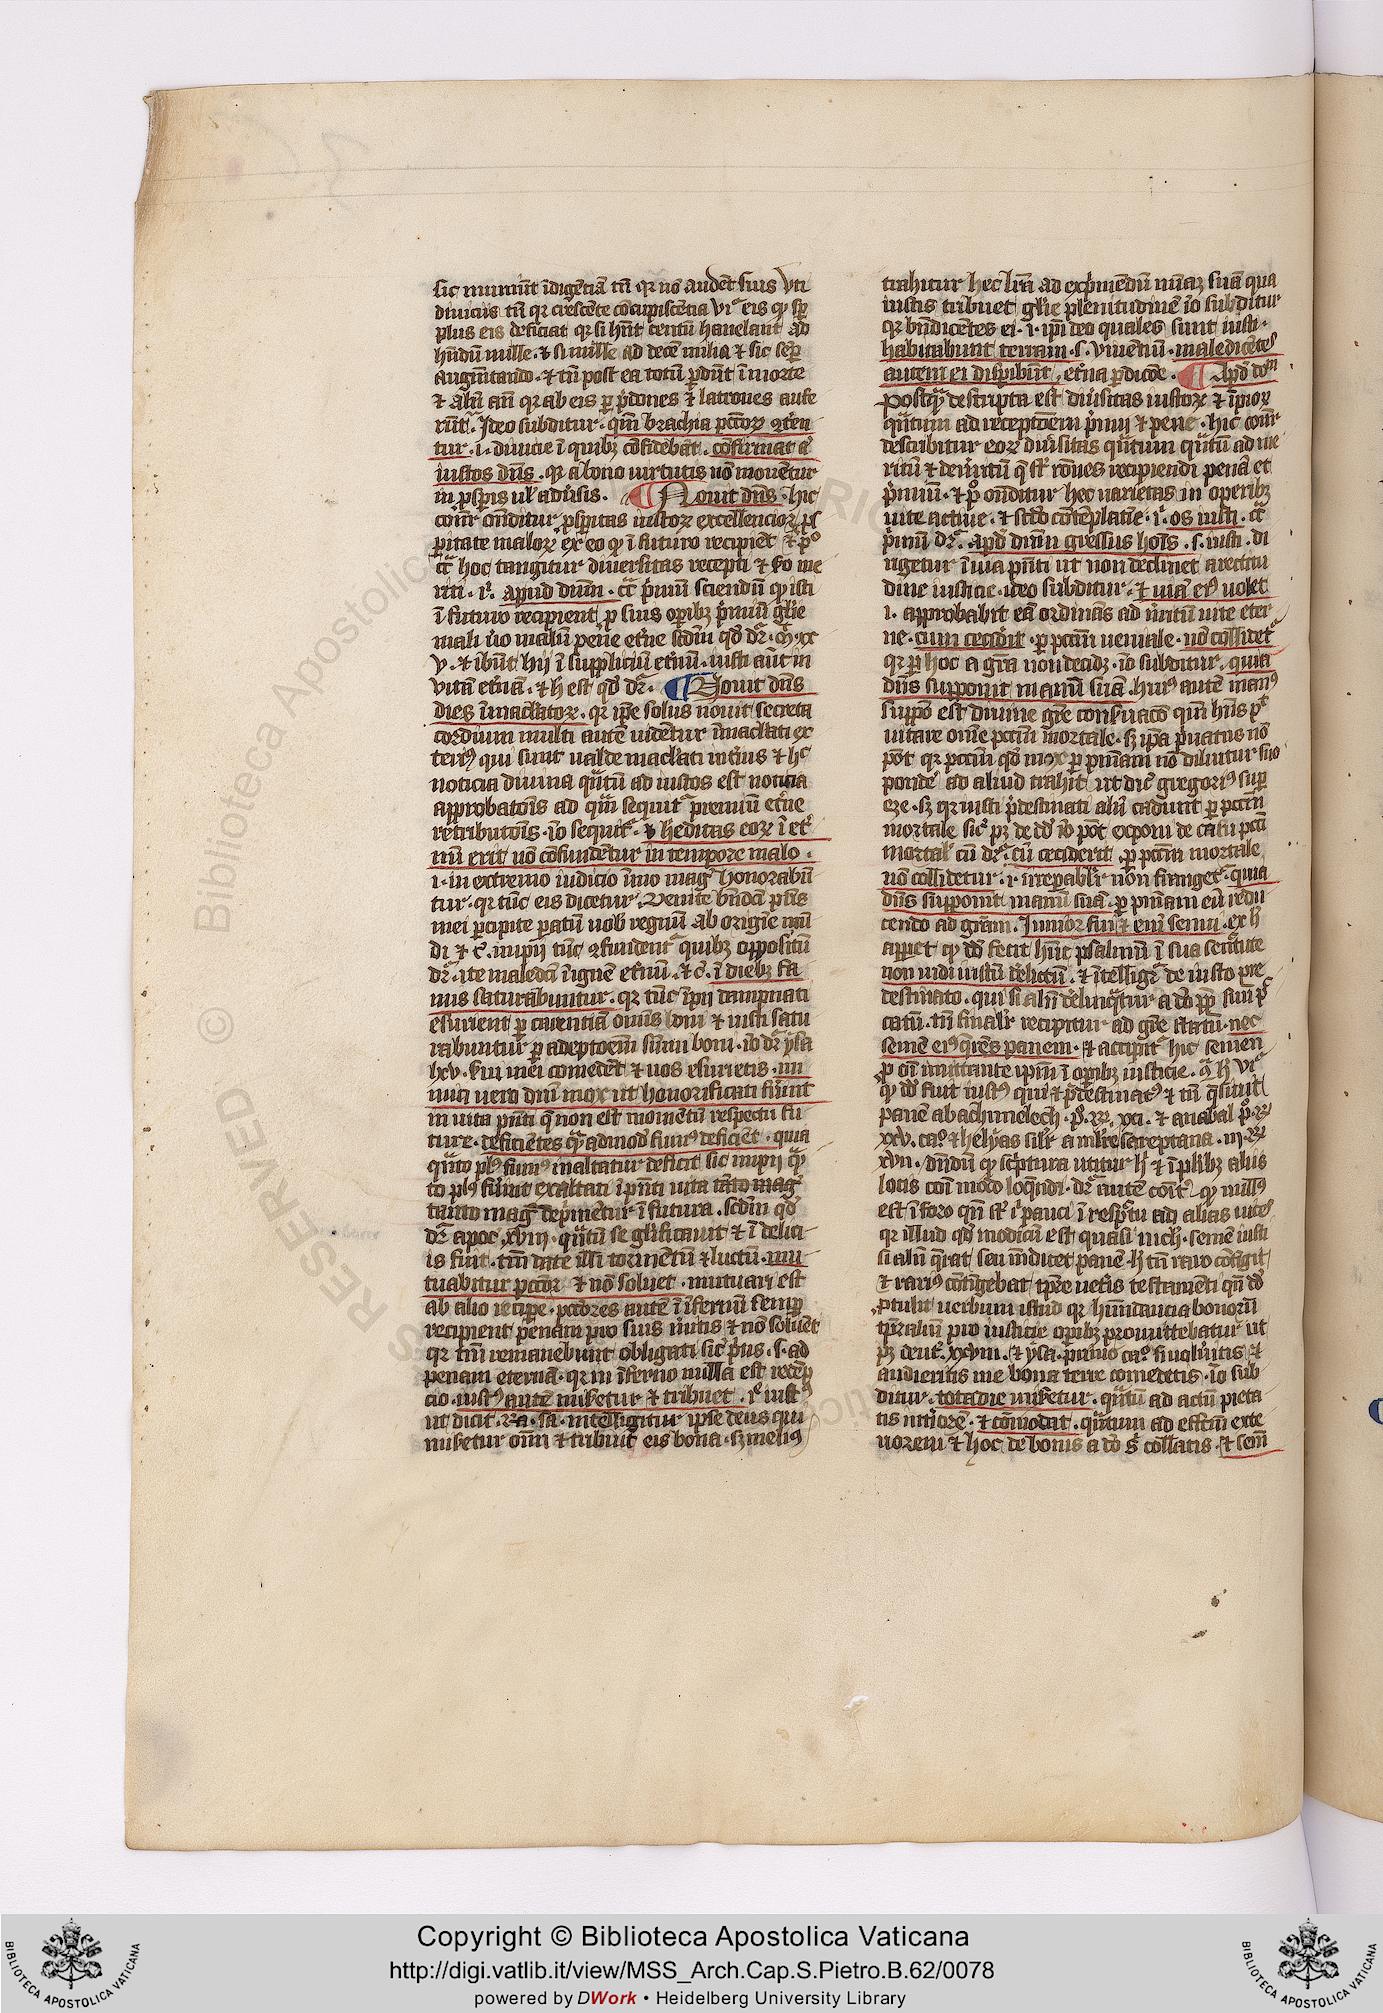 sic minuunt īdigētiā tū qr nō audēt suis vti
diuiciis tū qr crescēte cōcupiscētia vr̄ eis qd sp̄
plus eis deficiat qr si hn̄t centū hanelant ad
hn̄dū mille ⁊ si mille ad decē milia ⁊ sic sēp
augm̄tando ⁊ tn̄ post ea totū p̄dūt ī morte
⁊ aliī an̄ qr ab eis per p̄dones ⁊ latrones aufe
rūtr Ideo subditur qm̄ brachia pctōꝝ ꝯterē
tur i diuicie ī quibꝫ cōfidebāt cōfirmat aͭ
iustos dn̄s qr a bono uirtutis nō mouētur
in prosperis ul' aduersis ¶ Nouit dn̄s hic
cōnr̄ ondit̄ur prosperitas iustoꝝ excellencior pros
peritate maloꝝ ex eo qd ī futuro recipiēt ⁊ pͦ
cͣ hoc tangitur diuersitas recepti ⁊ sͦ me
riti ī apud dnm̄ cͣ primū sciendū qd isti
ī futuro recipient pro suis opibꝫ premiū glorie
mali uͦo malū pene etn̄e scdm̄ qd dr̄ Mͭ xx
v ⁊ ibūt hij ī suppliciū etn̄ū iusti aūt in
vitā etn̄ā ⁊ h est qd dr̄ ¶ Nouit dn̄s
dies īmaclatoꝝ qr ipe solus nouit secreta
cordium multi autē uidētur īmaclati ex
teri9 qui sunt ualde maclati interius ⁊ hͨ
noticia diuina quātū ad iustos est noticia
approbatōis ad quā sequitͬ premiū etn̄e
retributōis iō sequitͬ ⁊ heditas eoꝝ ī etͬ
nū erit nō cōfundētur in tempore malo
i in extremo iudicio īmo magͭ honorabū
tur qr tūc eis dicetur Venite bn̄dc̄i pr̄is
mei percipite paratū uob regnuū ab origīe mū
di ⁊ c̄ impii tūc ꝯfundentͬ quibꝫ oppositū
dr̄ ite maledc̄i ī ignē etn̄ū ⁊ c̄ ī diebꝫ fa
mis saturabuntur qr tūc īpii dampnati
esurient per carentiā omnis boni ⁊ iusti satu
rabuntur per adeptōem̄ sūmi boni iō dr̄ ysa
lxv Serui mei comedēt ⁊ uos esurietis ini
mici uero dn̄i mox ut honorificati fūint
in uita pn̄ti que non est momētū respectu fu
ture deficiētes quēadmodū fum9 deficiēt quia
quāto pl9 fum9 inaltatur deficit sic impii quā
to pl9 fūint exaltati ī pn̄ti uita tāto magͭ
tanto magͭ depmētur ī futura scdm̄ qd
dr̄ apoc xviij quātū se glificauit ⁊ ī delici
is fuit tm̄ date illi tormētū ⁊ luctū mu
tuabitur pctōr ⁊ nō soluet mutuari est
ab alio recipe pctōres autē ī īfernū semp
recipient penam pro suis meritis ⁊ nō soluēt
qr tm̄ remanebunt obligati sicͭ prius s ad
penam eternā qr in īferno nulla est redēp
cio iust9 autē misetur ⁊ tribuet ī iustͥ
ut dicit Ra Sa intelligitur ipse deus qui
misetur om̄i ⁊ tribuit eis bona sꝫ meli9
trahitur hec lr̄a ad expmēdū miāꝫ suā qua
iustis tribuet glorie plenitudinē iō subditur
qr bn̄dicētes ei i ipi deo quales sunt iusti
habitabunt terram s viuentiū maledicētes
autem ei dispibūt etn̄a pdicōe ¶ Apd dn̄m
Postquā descripta est diuersitas iustoꝝ ⁊ īpioꝝ
quātum ad receptōem premii ⁊ pene hic cōnr̄
describitur eoꝝ diuersitas quātum quātū ad me
ritū ⁊ demeritū que sūt rōnes recipiendi penā et
premiū ⁊ pͦ onditur hec varietas in operibꝫ
uite actiue ⁊ scdo cōtēplatiue ī os iusti cͣ
primū dr̄ apd dnm gressus hois s iusti di
rigetur ī uia pn̄ti ut non declinet a rectitu
dine iusticie ideo subditur ⁊ uiā ei9 uolet
i approbabit eā ordinās ad meritū uite eter
ne cum cecidit per pctm ueniale nō collidetͬ
qr per hoc a grā non decidꝫ iō subditur quia
dn̄s supponit manū suā hui9 autē man9
supp̄o est diuine gr̄e conseruacō qm̄ hns pͭ
uitare om̄e pctm̄ mortale sꝫ ipā priuatus nō
pōt qr pctm̄ qd mox per pniam nō diluitur suo
pondeͤ ad aliud trahit ut dicͭ gregori9 super
eze sꝫ qr iusti predestinati aliī cadunt per pctm̄
mortale sicͭ pꝫ de dd iō pōt exponi de casu pcti
mortalͥ cū dr̄ cū ceciderit per pctm̄ mortale
nō collidetur i irrepabilͬ non franget quia
dn̄s supponit manū suā per pniam eū redu
cendo ad grām Iunior fui ⁊ enī senui ex h
apparet qd dd fecit hūc psalmū ī sua senectute
non uidi iustū derelictū ⁊ ītelligͬ de iusto pre
destinato qui si aliī delinquātur a dō propter suū pc̄
catū tn̄ finalͬ recipitur ad gr̄e statū nec
semē ei9 querēs panem ⁊ accipitͬ hic semen
pro oī imitante ipm̄ ī opibꝫ iusticie qͣ h vͬ
qd dd fuit iust9 qui ⁊ predestinat9 ⁊ tn̄ quesiuit
panē ab achimelech pͥ R xxi ⁊ anabal pͥ R
xxv caͦ ⁊ helyas silͬ a muliere sareptana iij R
xvij dn̄dū qd scriptura utitur h ⁊ ī plibꝫ aliis
locis cōi modo loquēdi dr̄ autē cōit9 qd null9
est ī foro qn̄ sūt ī pauci ī respectu ad alias uices
qr illud qd modicū est quasi nich semē iusti
si aliī querat seu mēdicet panē h tn̄ raro cōtigit
⁊ rari9 cōtigebat tpre uetis testamēti qn̄ dd
ptulit uerbum istud qr habūdancia bonorū
tpraliū pro iusticie opibꝫ promittebatur ut
pꝫ deut xxviij ⁊ ysa primo caͦ si uolūitis ⁊
audieritis me bona terre comedetis iō sub
ditur tota die misetur quātū ad actū pieta
tis interiorē ⁊ cōmodat quātum ad effectū exte
riorem ⁊ hoc de bonis a dō sͥ collatis ⁊ sem̄
Copyright © Biblioteca Apostolica Vaticana
http://digi.vatlib.it/view/MSS_Arch.Cap.S.Pietro.B.62/0078
powered by DWork • Heidelberg University Library
BIBLIOTECA APOSTOLICA VATICANA
BIBLIOTECA APOSTOLICA VATICANA